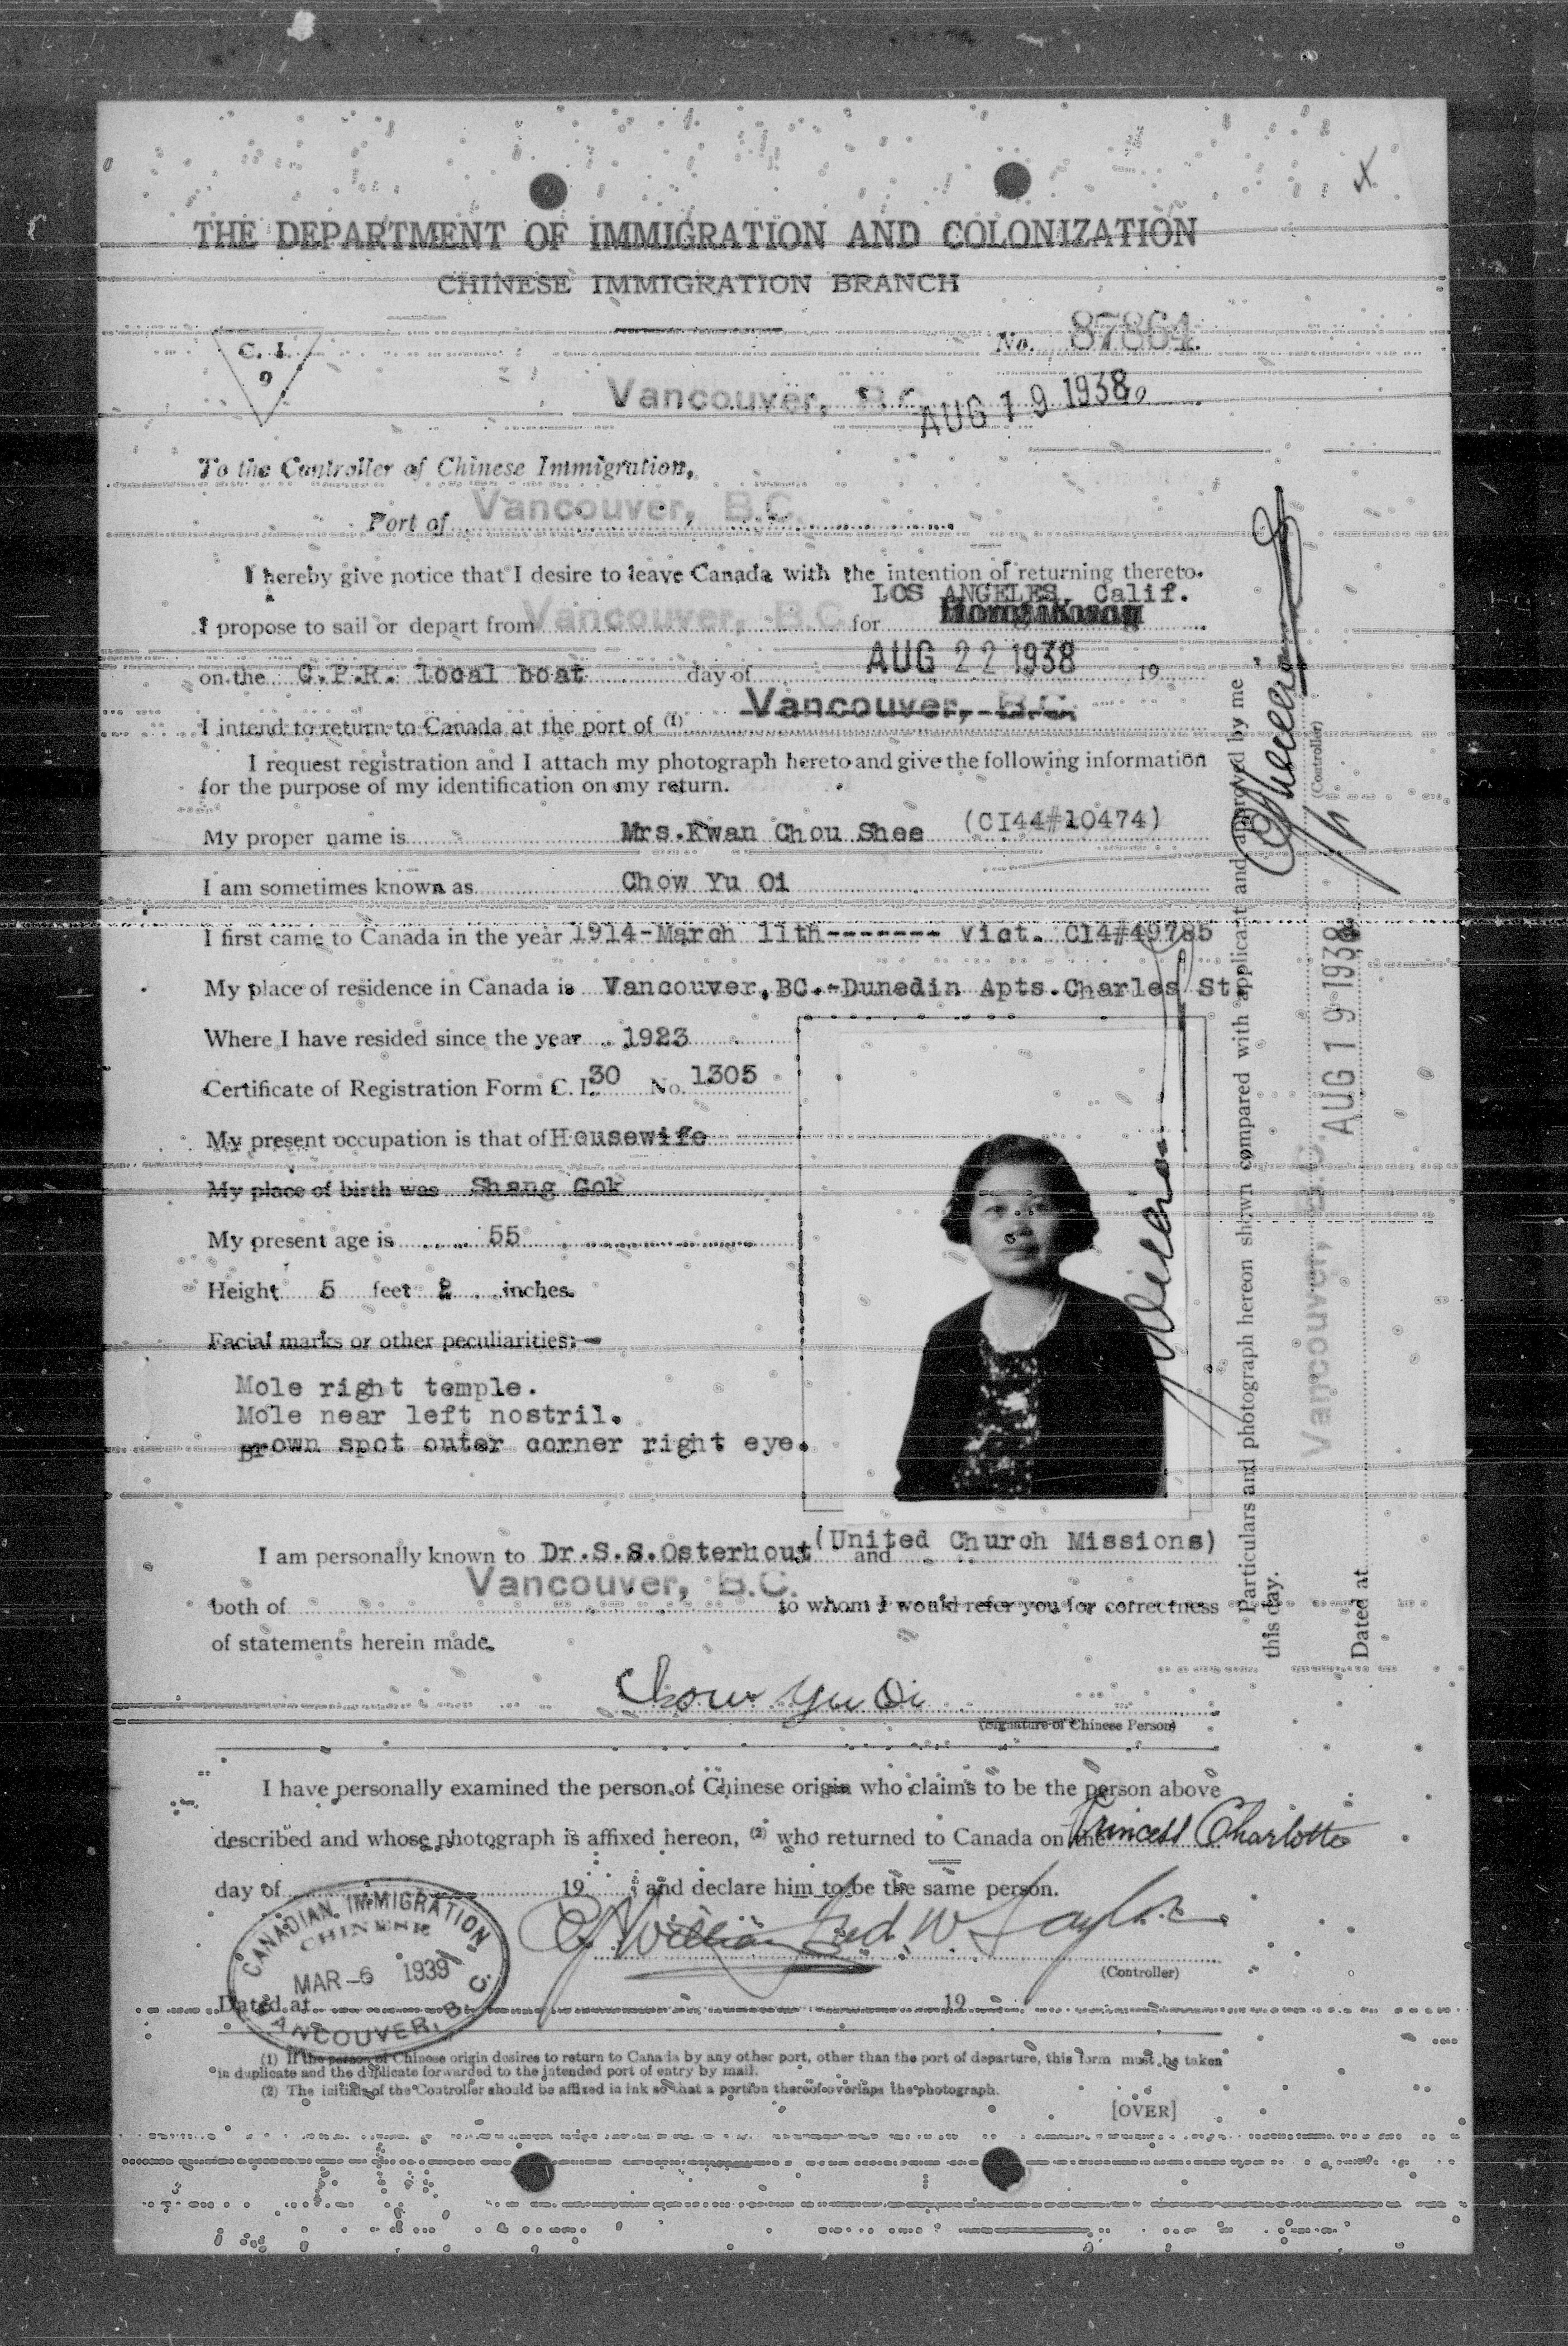 THE DEPARTMENT OF IMMIGRATION AND COLONIZATION
CHINESE IMMIGRATION BRANCH
C. I.
9
No. 87864
Vancouver, B.C. AUG 19 1938
To the Controller of Chinese Immigration,
Port of Vancouver, B.C.
I hereby give notice that I desire to leave Canada with the intention of returning thereto.
LOS ANGELES, Calif.
I propose to sail or depart from Vancouver, B.C. for
on the C.P.R. local boat day of AUG 22 1938 19
I intend to return to Canada at the port of (1) Vancouver, B.C.
I request registration and I attach my photograph hereto and give the following information
for the purpose of my identification on my return.
My proper name is Mrs.Kwan Chou Shee (CI44#10474)
I am sometimes known as Chow Yu Oi
I first came to Canada in the year 1914-March 11th------- Vict. CI4#49785
My place of residence in Canada is Vancouver,BC.-Dunedin Apts.Charles St.
Where I have resided since the year 1923
Certificate of Registration Form C. I. 30 No. 1305
My present occupation is that of Housewife
My place of birth was Shang Gok
My present age is 55
Height 5 feet 2 inches.
Facial marks or other peculiarities:—
Mole right temple.
Mole near left nostril.
Brown spot outer corner right eye.
I am personally known to Dr.S.S.Osterhout (United Church Missions)
and
both of Vancouver, B.C. to whom I would refer you for correctness
of statements herein made.
Chow Yu Oi
(Signature of Chinese Person)
I have personally examined the person of Chinese origin who claims to be the person above
described and whose photograph is affixed hereon, (2) who returned to Canada on the Princess Charlotte
day of 19 ; and declare him to be the same person.
Fred W Taylor
(Controller)
CANADIAN IMMIGRATION
CHINESE
MAR -6 1939
VANCOUVER, B.C.
Dated at 19
(1) If the person of Chinese origin desires to return to Canada by any other port, other than the port of departure, this form must be taken
in duplicate and the duplicate forwarded to the intended port of entry by mail.
(2) The initials of the Controller should be affixed in ink so that a portion thereof overlaps the photograph.
[OVER]
Particulars and photograph hereon shown compared with applicant and approved by me
this day.
(Controller)
Vancouver, B.C. AUG 19 1938
Dated at